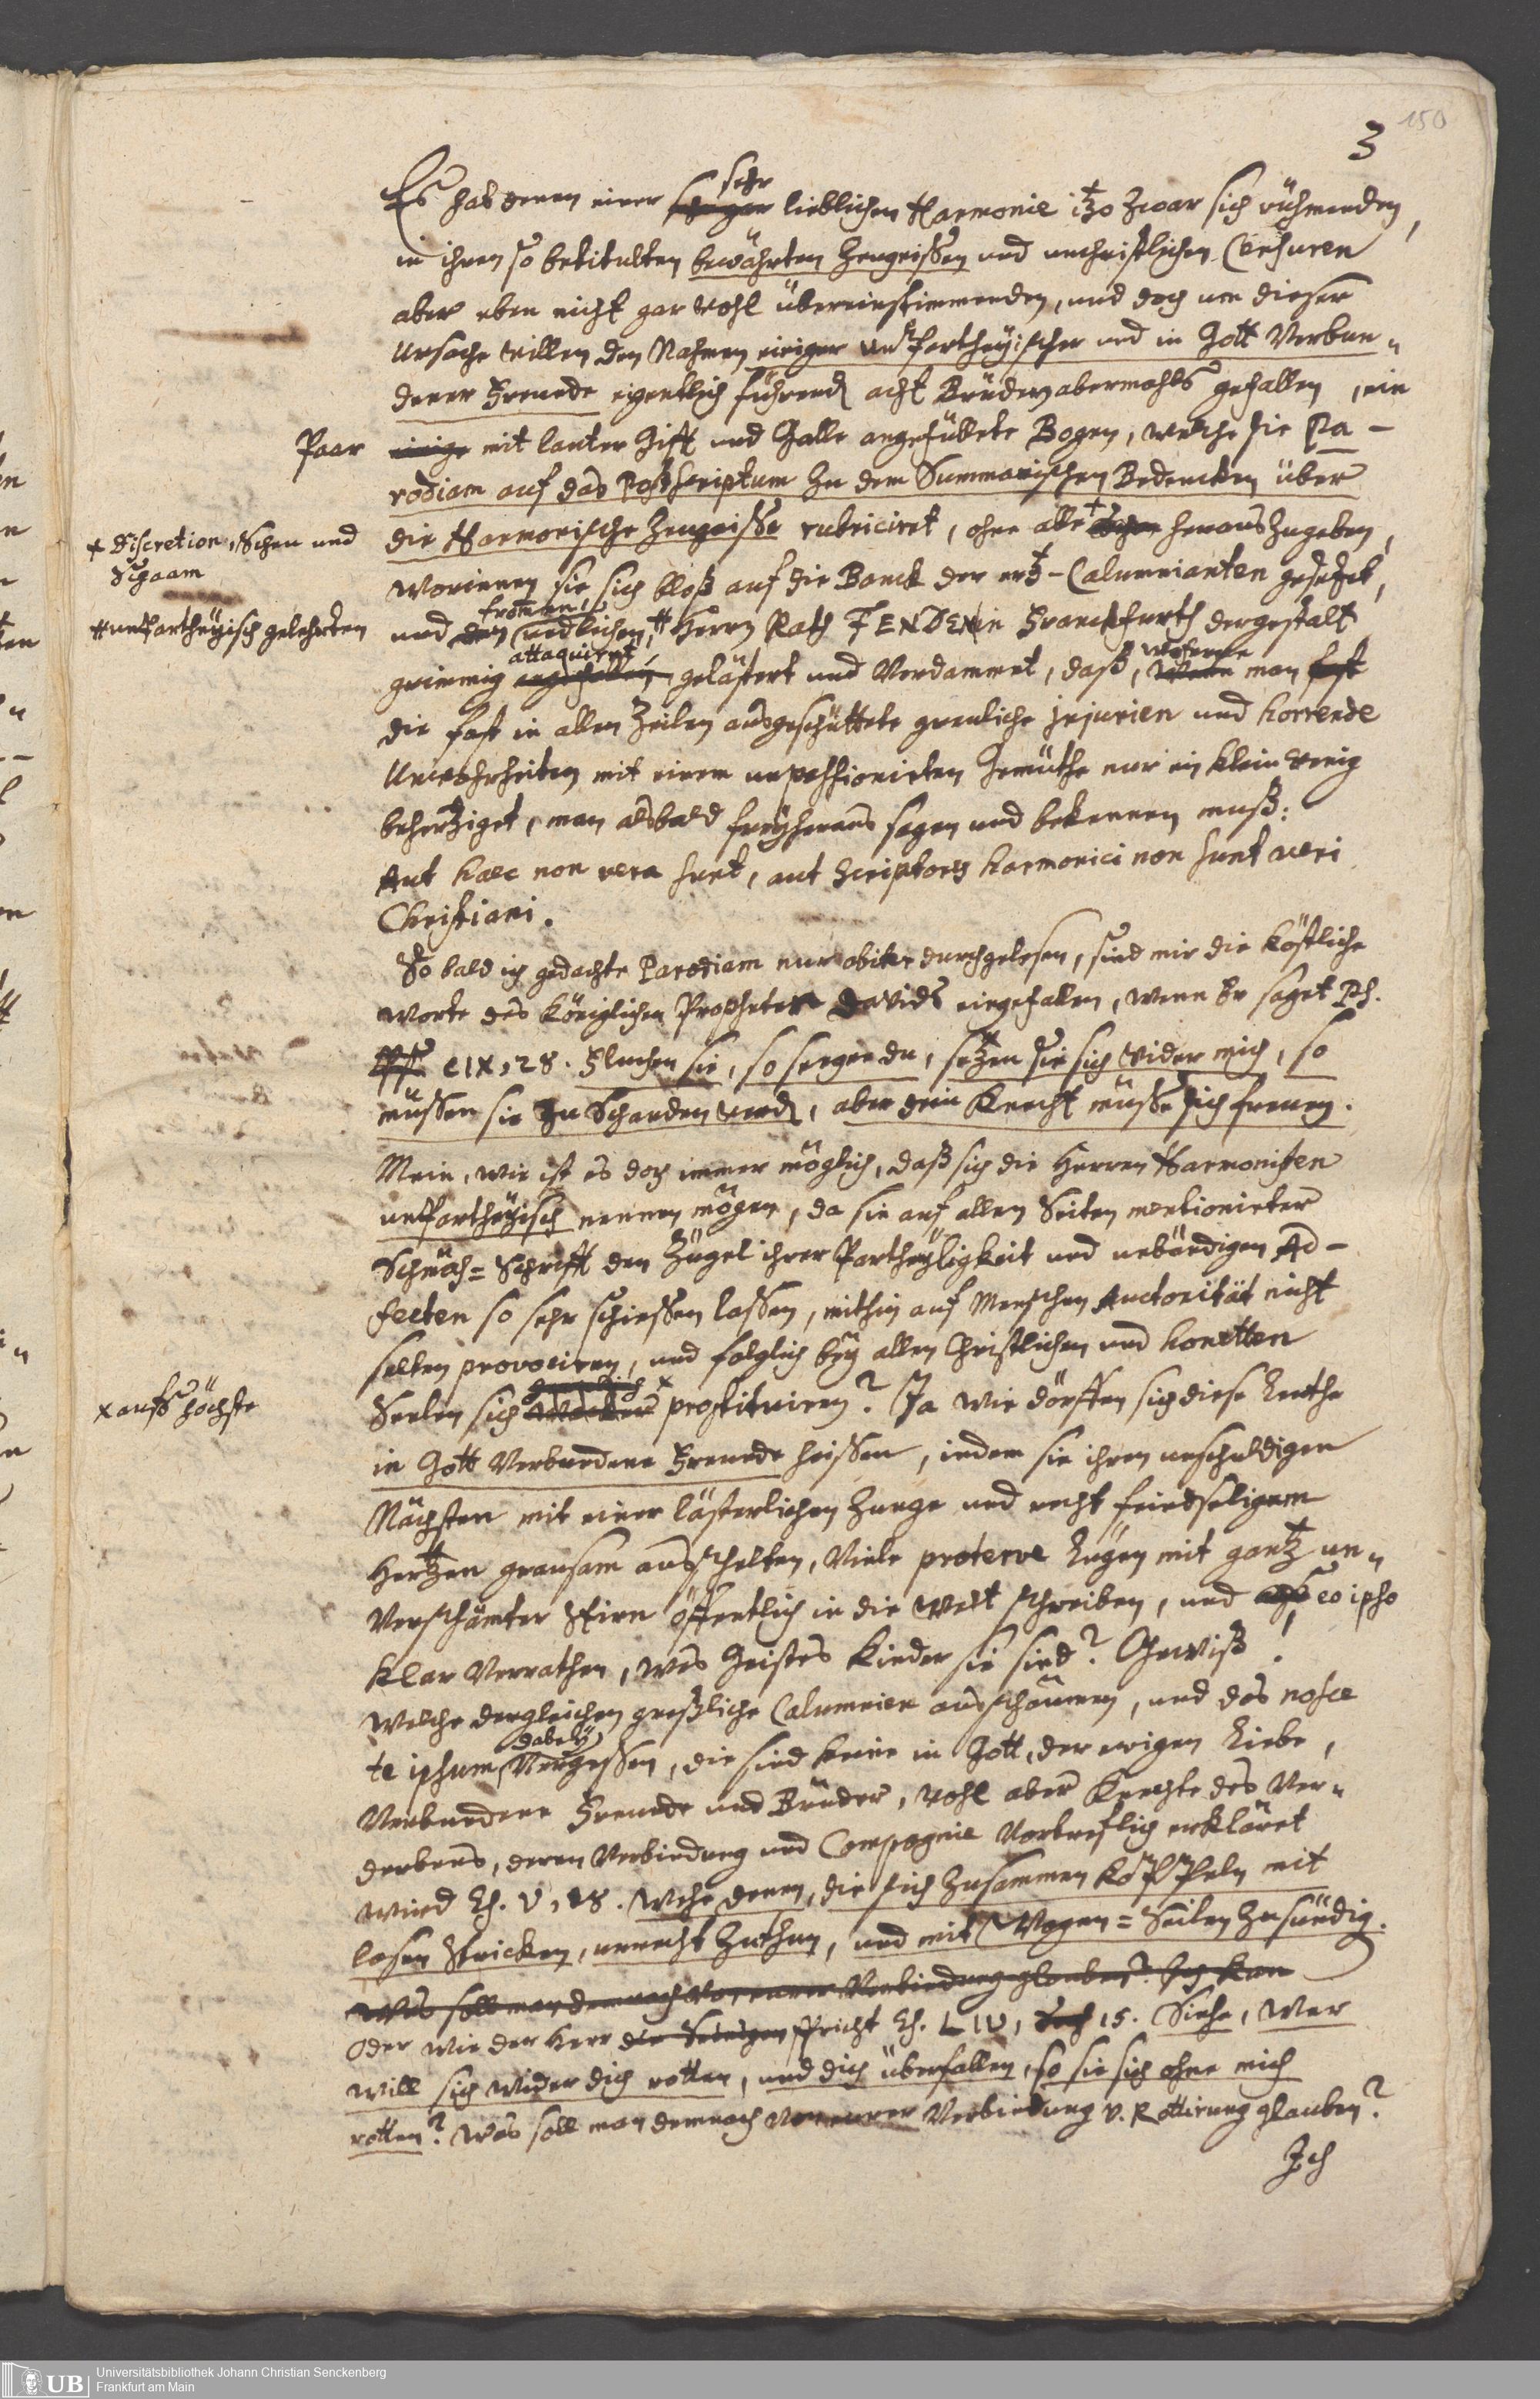 150
3
Es hat denen einer sehr lieblichen Harmonie itzo zwar sich rühmenden,
in ihren so betitulten bewährten Zeugnissen und unchristlichen Censuren
aber eben nicht gar wohl übereinstimmenden, und doch um dieser
Ursache willen den Nahmen einiger unpartheyischer und in Gott Verbun=
dener Freunde eigentlich führend acht Brüdern abermahls gefallen, ein
Paar einige mit lauter Gifft und Galle angefüllete Bogen, welche sie Pa-
rodiam auf das Postscriptum zu dem Summarischen Bedencken über
die Harmonische Zeugnisse rubriciret, ohne alle + Scheu herauszugeben,
+ discretion, Scheu und
Schaam
worinnen sie sich bloß auf die Banck der ertz-Calumnianten gesetzet,
frommen,
und den redlichen, # Herrn Rath FENDEN in Franckfurth dergestalt
# unpartheyisch gelehrten
attaquiret, woferne
grimmig gelästert und Verdammet, daß, wenn man fast
die fast in allen Zeilen ausgeschüttete greuliche injurien und horrende
Unwahrheiten mit einem unpassionirten Gemüthe nur ein klein wenig
behertziget, man alsbald frey heraus sagen und bekennen muß:
Aut haec non vera sunt, aut Scriptores harmonici non sunt veri
Christiani.
So bald ich gedachte Parodiam nur obiter durchgelesen, sind mir die köstliche
Worte des Königlichen Propheten Davids eingefallen, wenn Er saget Ps.
CIX, 28. Fluchen sie, so segne du, setzen sie sich wider mich, so
müssen sie zu Schanden werd, aber dein Knecht müsse sich freuen.
Mein, wie ist es doch immer möglich, daß sich die Herren Harmonisten
unpartheyisch nennen mögen, da sie auf allen Seiten mentionirter
Schmäh=Schrifft den Zügel ihrer Partheyligkeit und unbändigen Ad-
fecten so sehr schiessen lassen, mithin auf Menschen Auctorität nicht
selten provociren, und folglich bey allen Christlichen und honetten
Seelen sich wacker x prostituiren? Ja wie dörffen sich diese Leuthe
x aufs höchste
in Gott Verbundene Freunde heissen, indem sie ihren unschuldigen
Nächsten mit einer lästerlichen Zunge und recht feindseligem
Hertzen grausam ausschelten, Viele proterve Lügen mit gantz un=
Verschämter Stirn öffentlich in die Welt schreiben, und eo ipso
klar Verrathen, wes Geistes Kinder sie sind? Gewiß!
Welche dergleichen greßliche Calumnien ausschäumen, und das nosce
dabey
te ipsum Vergessen, die sind keine in Gott, der ewigen Liebe,
Verbundene Freunde und Brüder, wohl aber Knechte des Ver=
derbens, deren Verbindung und Compagnie Vortreflich erkläret
wird Es. V, 18. Wehe denen, die sich zusammen koppeln mit
losen Stricken, unrecht zu thun, und mit Wagen=Seilen zu sündig.
Was soll man demnach Von eurer Verbindung glauben? Ich kan
Oder wie der Herr spricht Es. LIV, 15. Siehe, wer
will sich wider dich rotten, und dich überfallen, so sie sich ohne mich
rotten? Was soll man demnach Von eurer Verbindung v. Rottirung glauben?
Ich
UB
Universitätsbibliothek Johann Christian Senckenberg
Frankfurt am Main